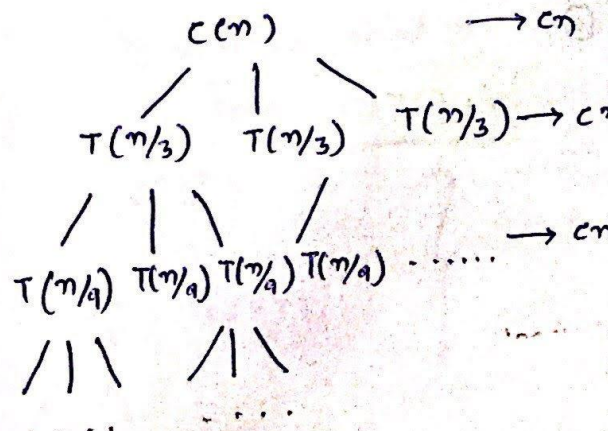 C(n) → cn
T(n/3) T(n/3) T(n/3) → c
T(n/9) T(n/9) T(n/9) T(n/9) ...... → cn
....
....